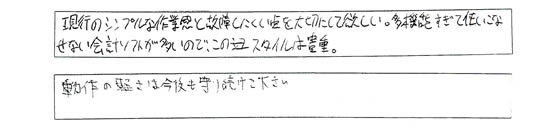 現行のシンプルな作業感と故障しにくい点を大切にして欲しい。多機能すぎて使いこな
せない会計ソフトが多いので、このスタイルは貴重。
動作の軽さは今後も守り続けて下さい